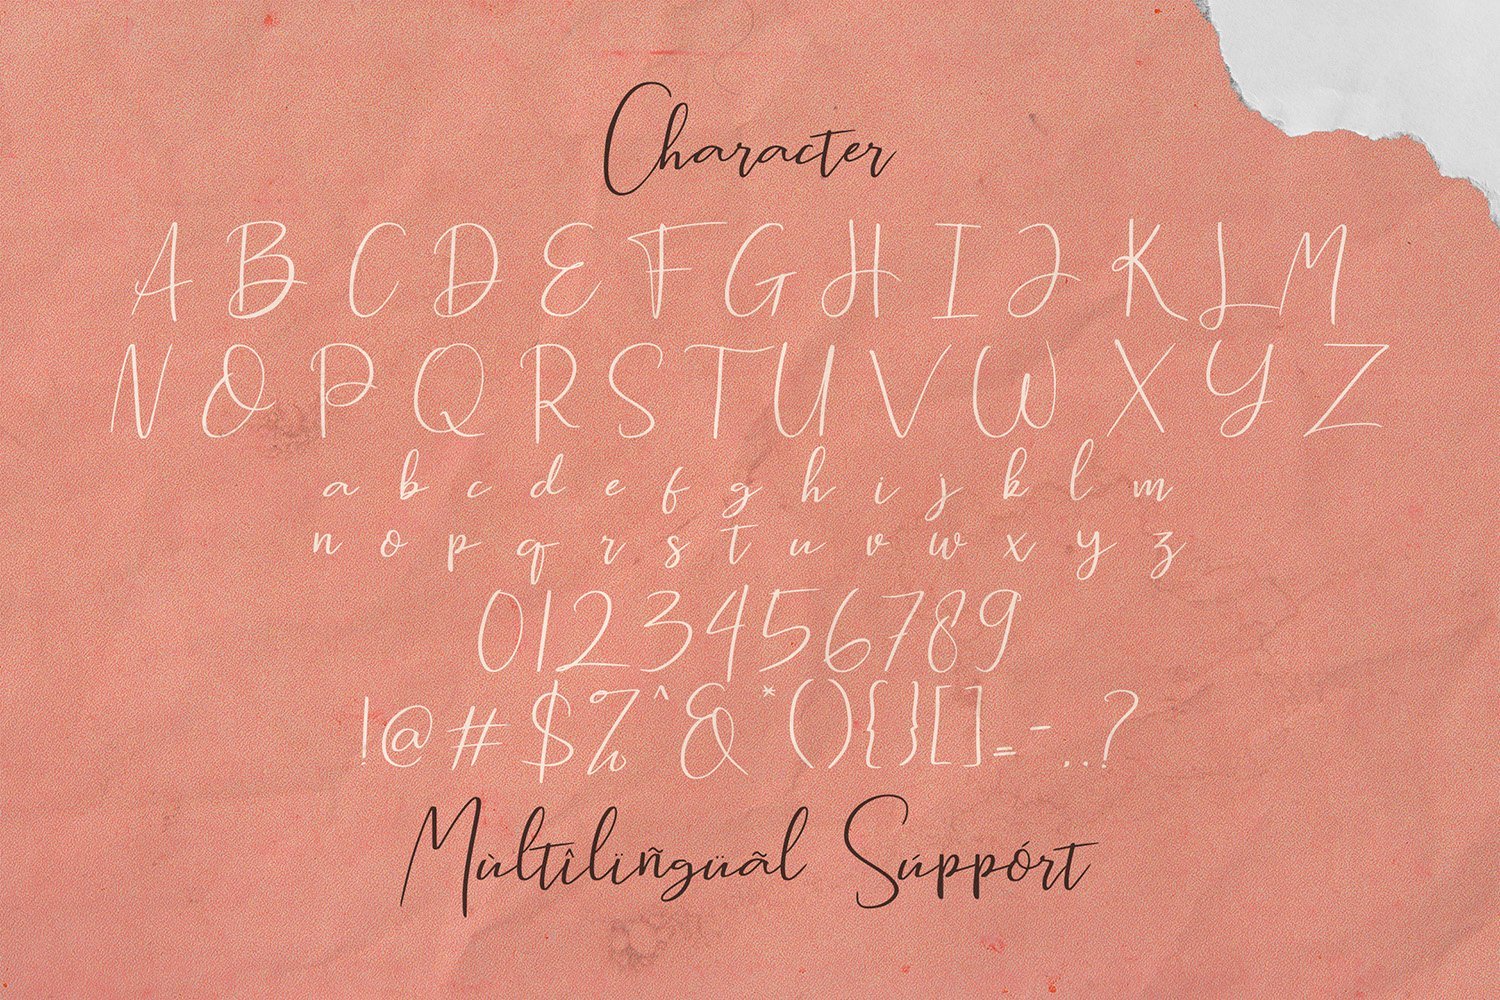 Character
A B C D E F G H I J K L M
N O P Q R S T U V W X Y Z
a b c d e f g h i j k l m
n o p q r s t u v w x y z
0123456789
!@#$%^&*(){}[]=-.,?
Mùltîlïñgüãl Súppórt